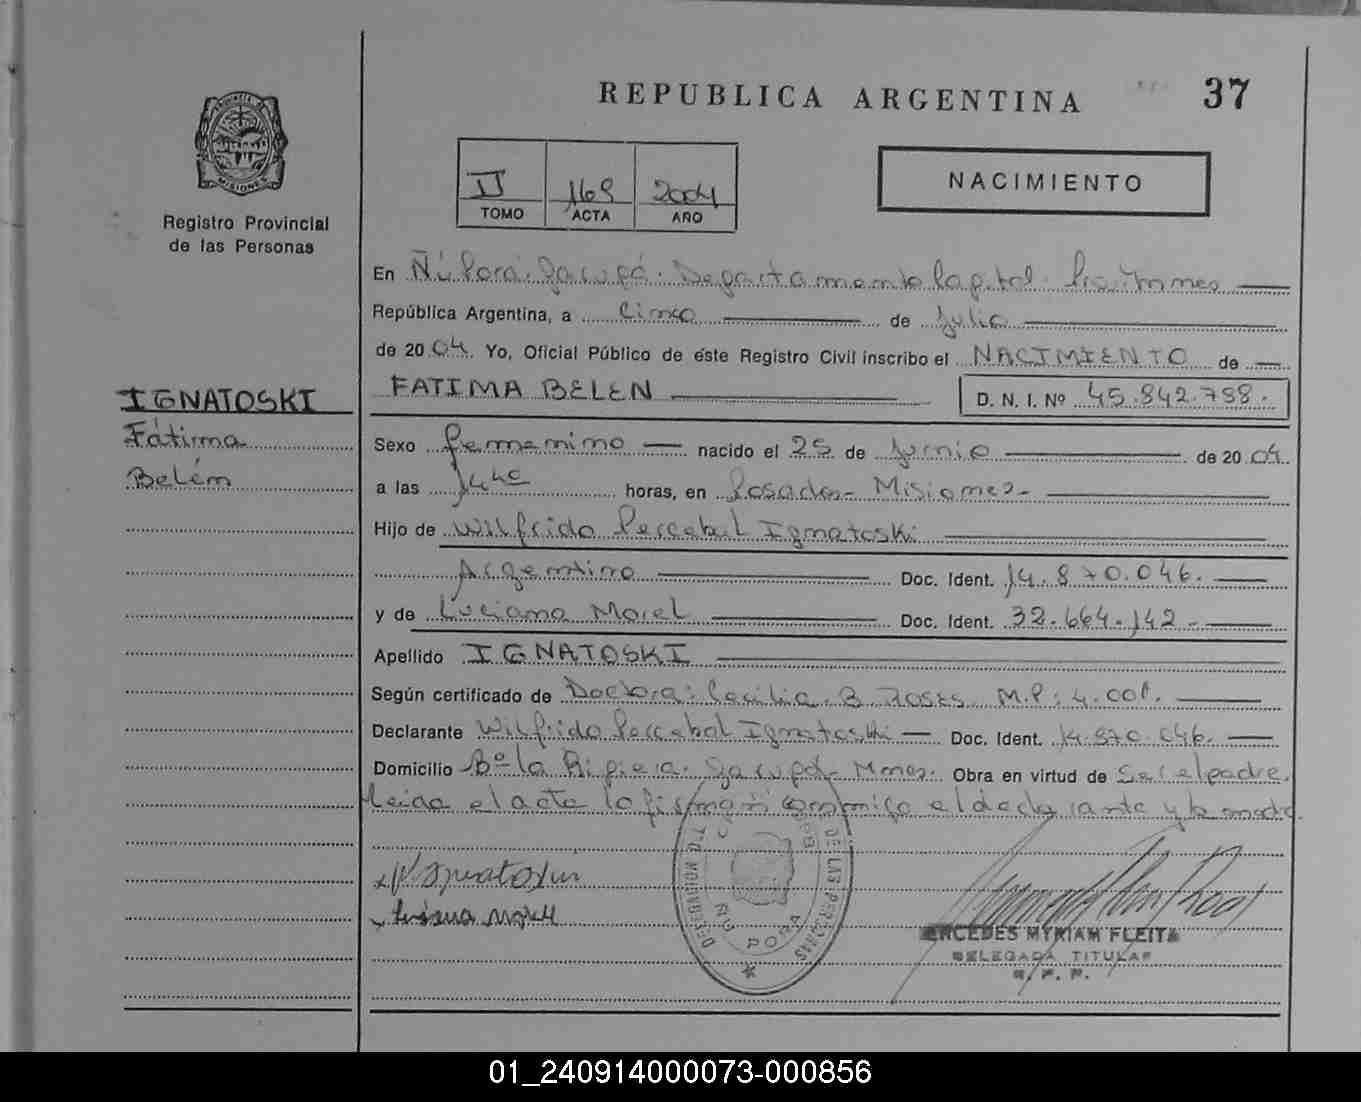 REPUBLICA ARGENTINA
37
PROVINCIA DE MISIONES
Registro Provincial
de las Personas
II 168 2004
TOMO ACTA AÑO
NACIMIENTO
En Ñu Porá. Garupá. Departamento Capital. Misiones
República Argentina, a Cinco de Julio
de 2004. Yo, Oficial Público de este Registro Civil inscribo el NACIMIENTO de
FATIMA BELEN D. N. I. Nº 45.842.788.
IGNATOSKI
Fátima
Belém
Sexo femenino nacido el 25 de Junio de 2004.
a las horas, en Posadas - Misiones -
Hijo de Wilfrido Percebal Ignatoski
Argentino Doc. Ident. 14.870.046.
y de Luciana Morel Doc. Ident. 32.664.142 -
Apellido IGNATOSKI
Según certificado de Doctora: Cecilia. B. M.P: 4.001.
Declarante Wilfrido Percebal Ignatoski Doc. Ident. 14.870.046.
Domicilio Bº La Garupá - Mnes. Obra en virtud de Ser el padre.
Leida el acta la firman conmigo el declarante y la madre.
Ignatoski
Luciana Morel
DELEGACION T.Q. DE LAS PERSONAS
ÑU PORA
MERCEDES MYRIAM FLEITA
DELEGADA TITULAR
R. P. P.
01_240914000073-000856